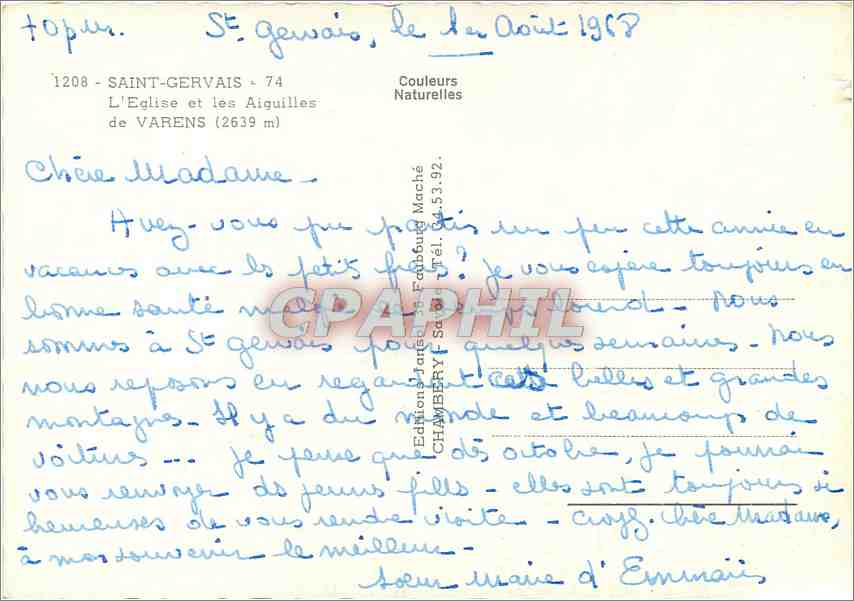 St. Gervais, le 1er Août 1968
1208 - SAINT-GERVAIS - 74
L'Eglise et les Aiguilles
de VARENS (2639 m)
Couleurs
Naturelles
Chère Madame -
Avez-vous pu partir un peu cette année en
vacances avec les petits ? Je vous espère toujours en
bonne santé malgré le temps lourd - Nous
sommes à St Gervais pour quelques semaines - Nous
nous reposons en regardant ces belles et grandes
montagnes - Il y a du monde et beaucoup de
voitures ... je pense que dès octobre, je pourrai
vous renvoyer des jeunes filles - elles sont toujours si
heureuses de vous rendre visite - croyez, Chère Madame,
à mon souvenir le meilleur -
Soeur Marie d'Emmaüs
Editions Jansol 38 Faubourg Maché
CHAMBERY - Savoie - Tél. 34.53.92.
CPAPHIL